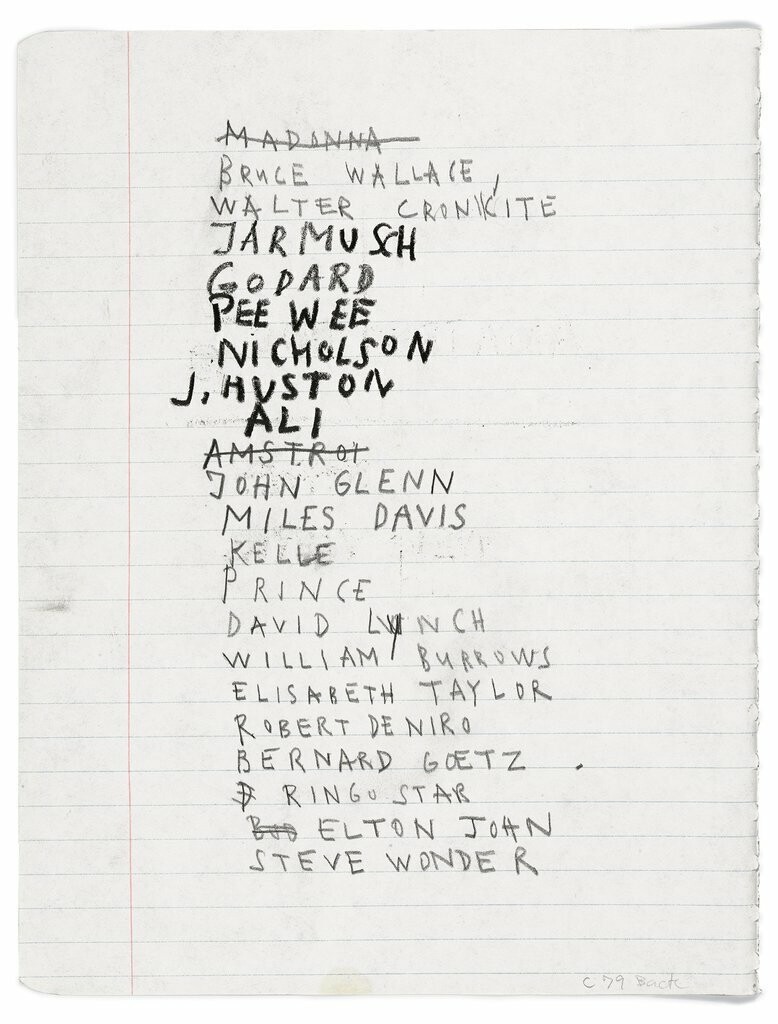 MADONNA
BRUCE WALLACE,
WALTER CRONKITE
JARMUSCH
GODARD
PEE WEE
NICHOLSON
J. HUSTON
ALI
AMSTROI
JOHN GLENN
MILES DAVIS
KELLE
PRINCE
DAVID LYNCH
WILLIAM BURROWS
ELISABETH TAYLOR
ROBERT DENIRO
BERNARD GOETZ .
RINGO STAR
ELTON JOHN
STEVE WONDER
C 79 Back